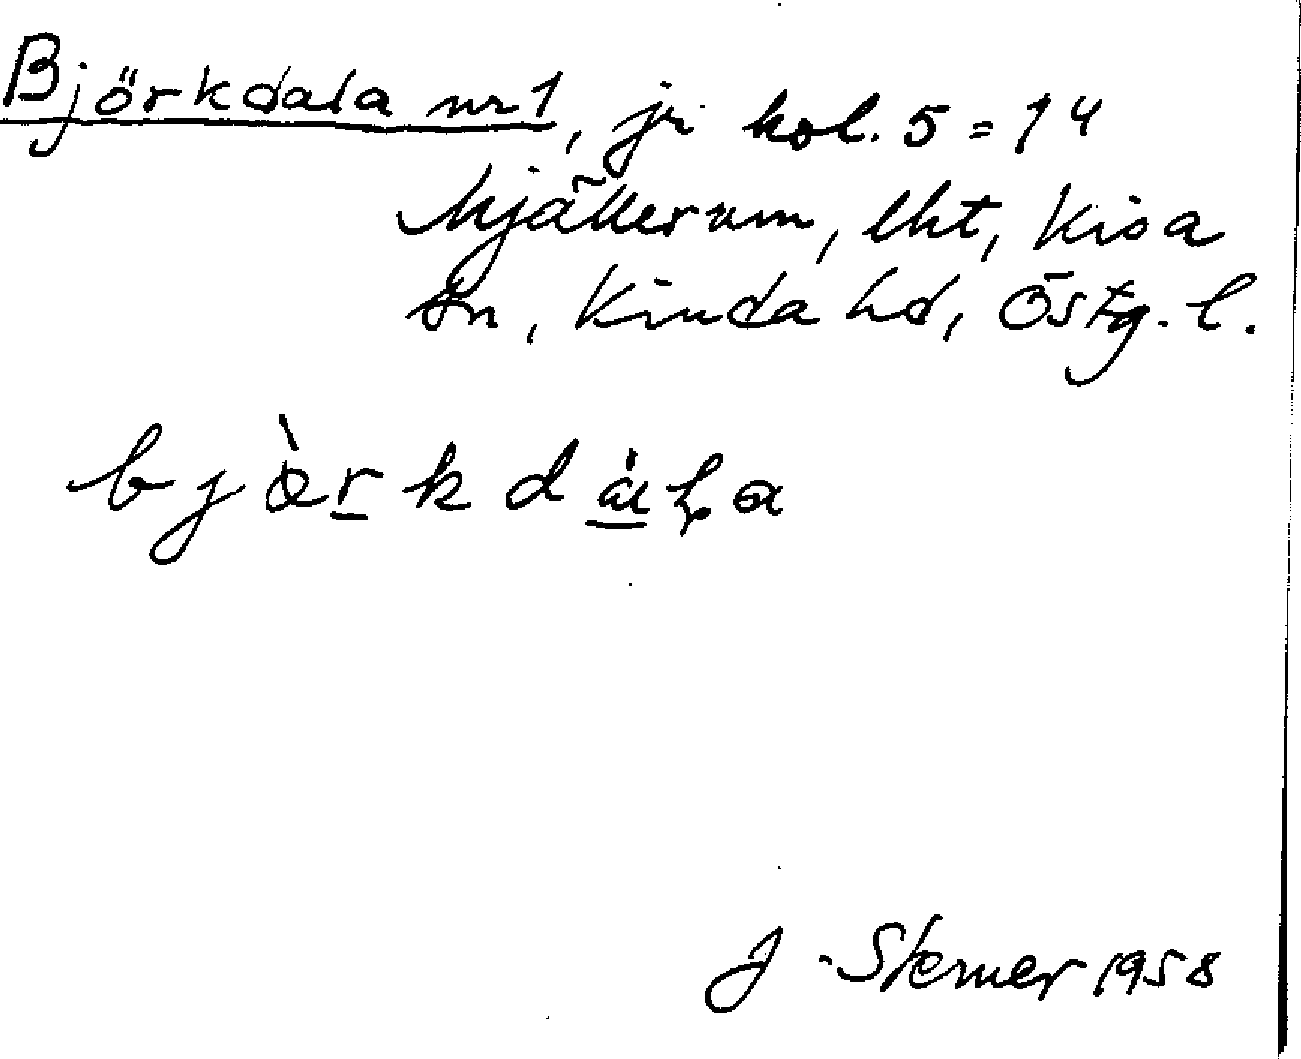 Björkdala nr 1, jr kol. 5 = 14
Mjällerum, lht, Kisa
sn, Kinda hd, Östg. l.
bjòrkdàla
J. Sterner 1958